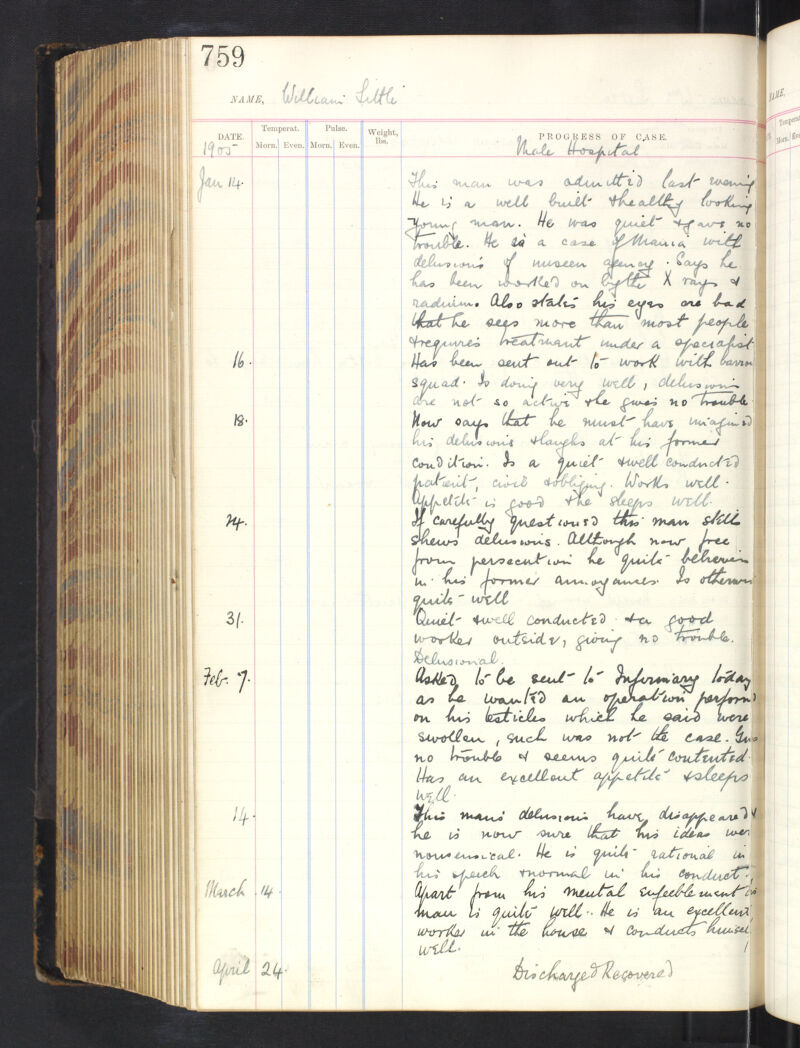 759
NAME, William Little
DATE. Temperat. Pulse. Weight, lbs. PROGRESS OF CASE.
Morn. Even. Morn. Even.
1905 Male Hospital
Jan 14. This man was admitted last evening
He is a well built & healthy looking
young man. He was quiet & gave no
trouble. He is a case of Mania with
delusions of unseen agency. Says he
has been worked on by the X rays &
radium. Also states his eyes are bad
that he sees more than most people
& requires treatment under a specialist
16. Has been sent out to work with barrow
squad. Is doing very well, delusions
are not so active & he gives no trouble
18. Now says that he must have imagined
his delusions & laughs at his former
condition. Is a quiet & well conducted
patient, civil & obliging. Works well.
Appetite is good & he sleeps well.
24. If carefully questioned this man still
shews delusions. Although now free
from persecution he quite believes
in his former annoyances. Is otherwise
quite well
31. Quiet & well conducted & a good
worker outside, giving no trouble.
Delusional.
Feb. 7. Asked to be sent to Infirmary today
as he wanted an operation performed
on his testicles which he said were
swollen, such was not the case. Gives
no trouble & seems quite contented.
Has an excellent appetite & sleeps
well.
14. This man's delusions have disappeared &
he is now sure that his ideas were
nonsensical. He is quite rational in
his speech & normal in his conduct.
March 14. Apart from his mental enfeeblement this
man is quite well. He is an excellent
worker in the house & conducts himself
well.
April 24. Discharged Recovered
NAME,
Temperat
Morn. Eve